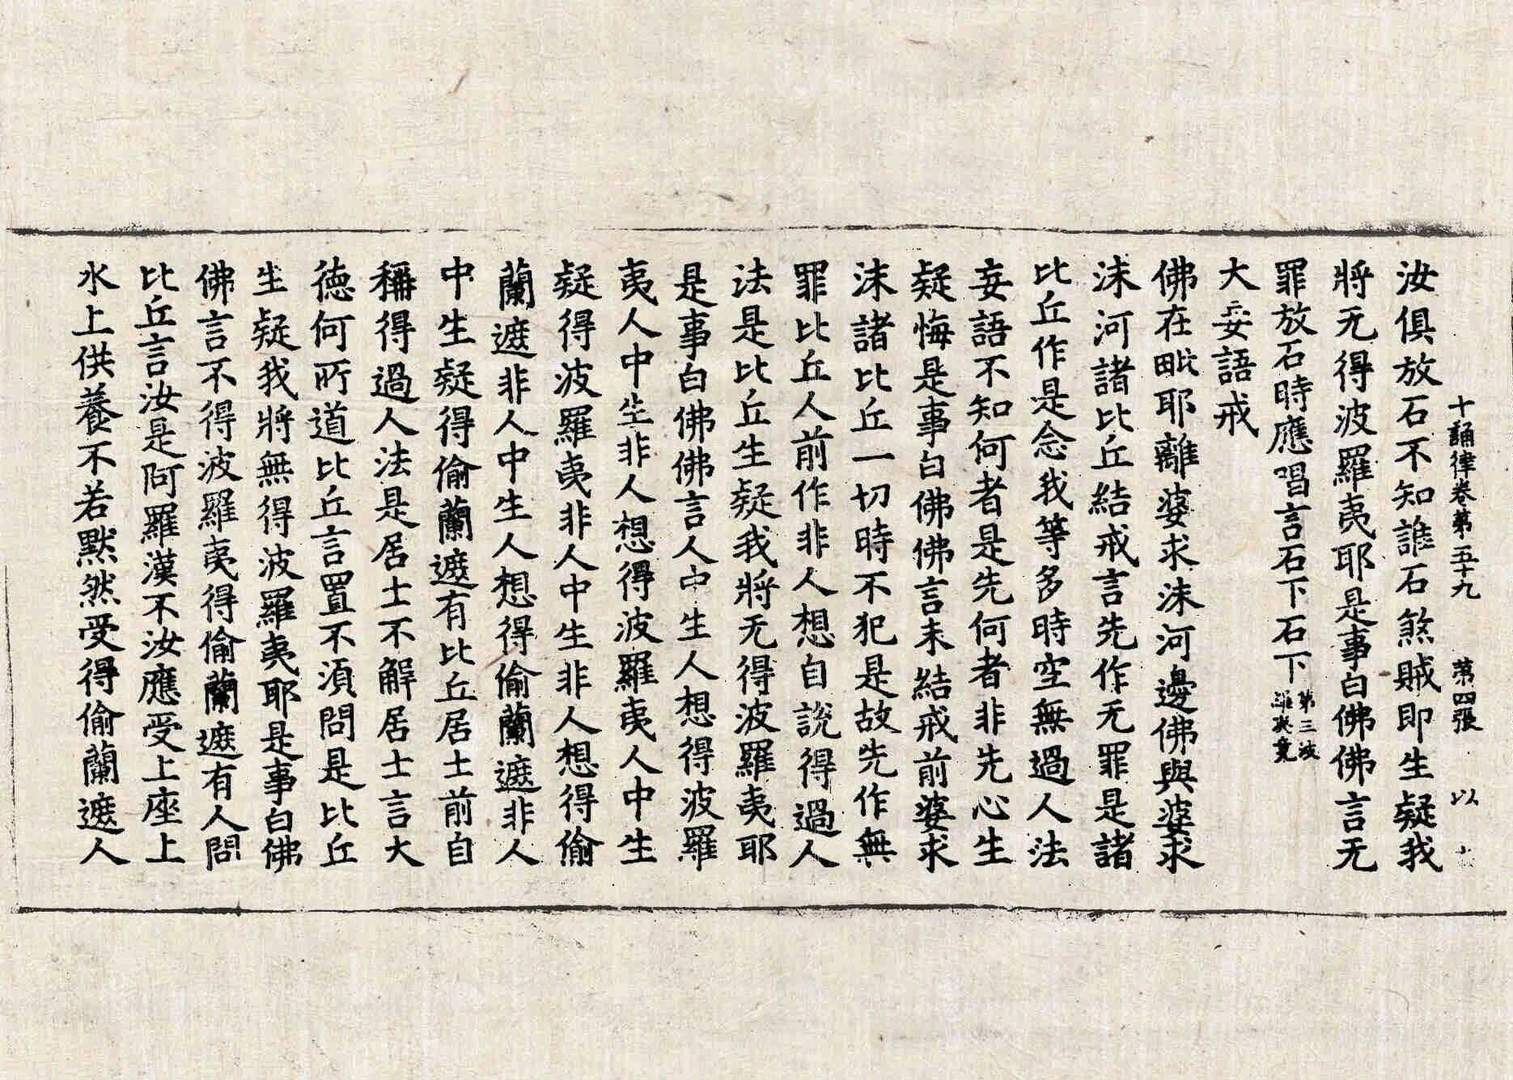 十誦律卷第五十九 第四張 以
汝俱放石不知誰石煞賊即生疑我
將无得波羅夷耶是事白佛佛言无
罪放石時應唱言石下石下第三波羅夷竟
大妄語戒
佛在毗耶離婆求沫河邊佛與婆求
沫河諸比丘結戒言先作无罪是諸
比丘作是念我等多時空無過人法
妄語不知何者是先何者非先心生
疑悔是事白佛佛言未結戒前婆求
沫諸比丘一切時不犯是故先作無
罪比丘人前作非人想自說得過人
法是比丘生疑我將无得波羅夷耶
是事白佛佛言人中生人想得波羅
夷人中生非人想得波羅夷人中生
疑得波羅夷非人中生非人想得偷
蘭遮非人中生人想得偷蘭遮非人
中生疑得偷蘭遮有比丘居士前自
稱得過人法是居士不解居士言大
德何所道比丘言置不須問是比丘
生疑我將無得波羅夷耶是事白佛
佛言不得波羅夷得偷蘭遮有人問
比丘言汝是阿羅漢不汝應受上座上
水上供養不若默然受得偷蘭遮人